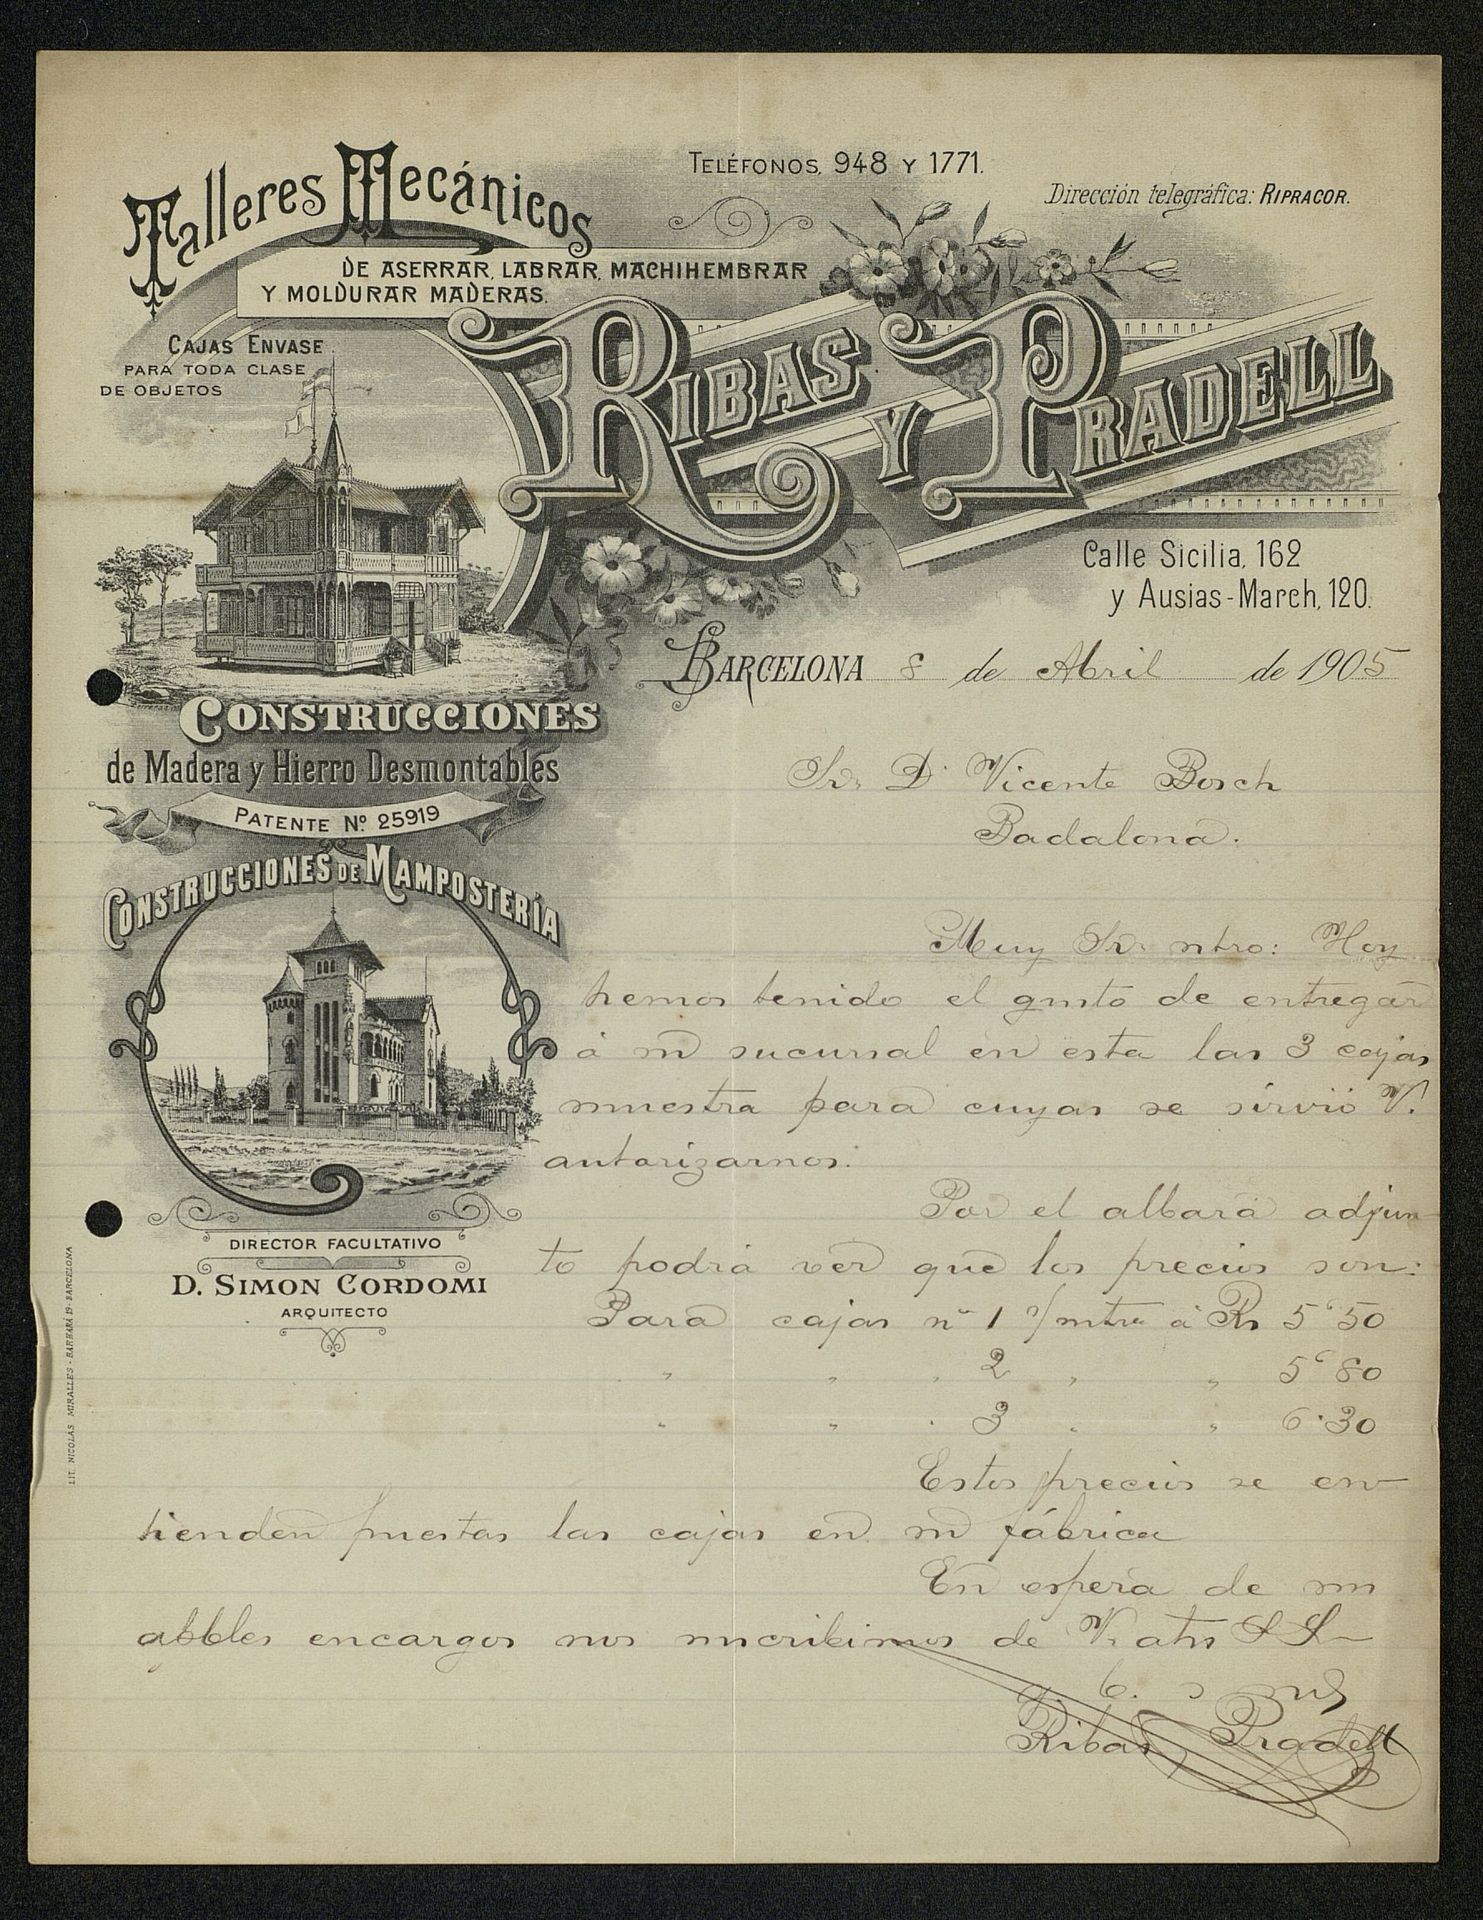 Talleres Mecánicos
DE ASERRAR, LABRAR, MACHIHEMBRAR
Y MOLDURAR MADERAS.
TELÉFONOS, 948 Y 1771.
Dirección telegráfica: RIPRACOR.
CAJAS ENVASE
PARA TODA CLASE
DE OBJETOS
RIBAS Y PRADELL
Calle Sicilia, 162
y Ausias-March, 120.
BARCELONA 8 de Abril de 1905
CONSTRUCCIONES
de Madera y Hierro Desmontables
PATENTE Nº 25919
CONSTRUCCIONES DE MAMPOSTERÍA
DIRECTOR FACULTATIVO
D. SIMON CORDOMI
ARQUITECTO
LIT. NICOLAS MIRALLES - BARBARÁ 19 - BARCELONA
Sr. D. Vicente Bosch
Badalona.
Muy Sr. ntro: Hoy
hemos tenido el gusto de entregar
á su sucursal en esta las 3 cajas
muestra para cuyas se sirvió V.
autorizarnos.
Por el albará adjun
to podrá ver que los precios son:
Para cajas nº 1 s/mtra á Rs 5'50
" " " 2 " " 5'80
" " " 3 " " 6'30
Estos precios se en-
tienden puestas las cajas en su fábrica
En espera de su
apbles encargos nos suscribimos de V. atts S S
Ribas Pradell